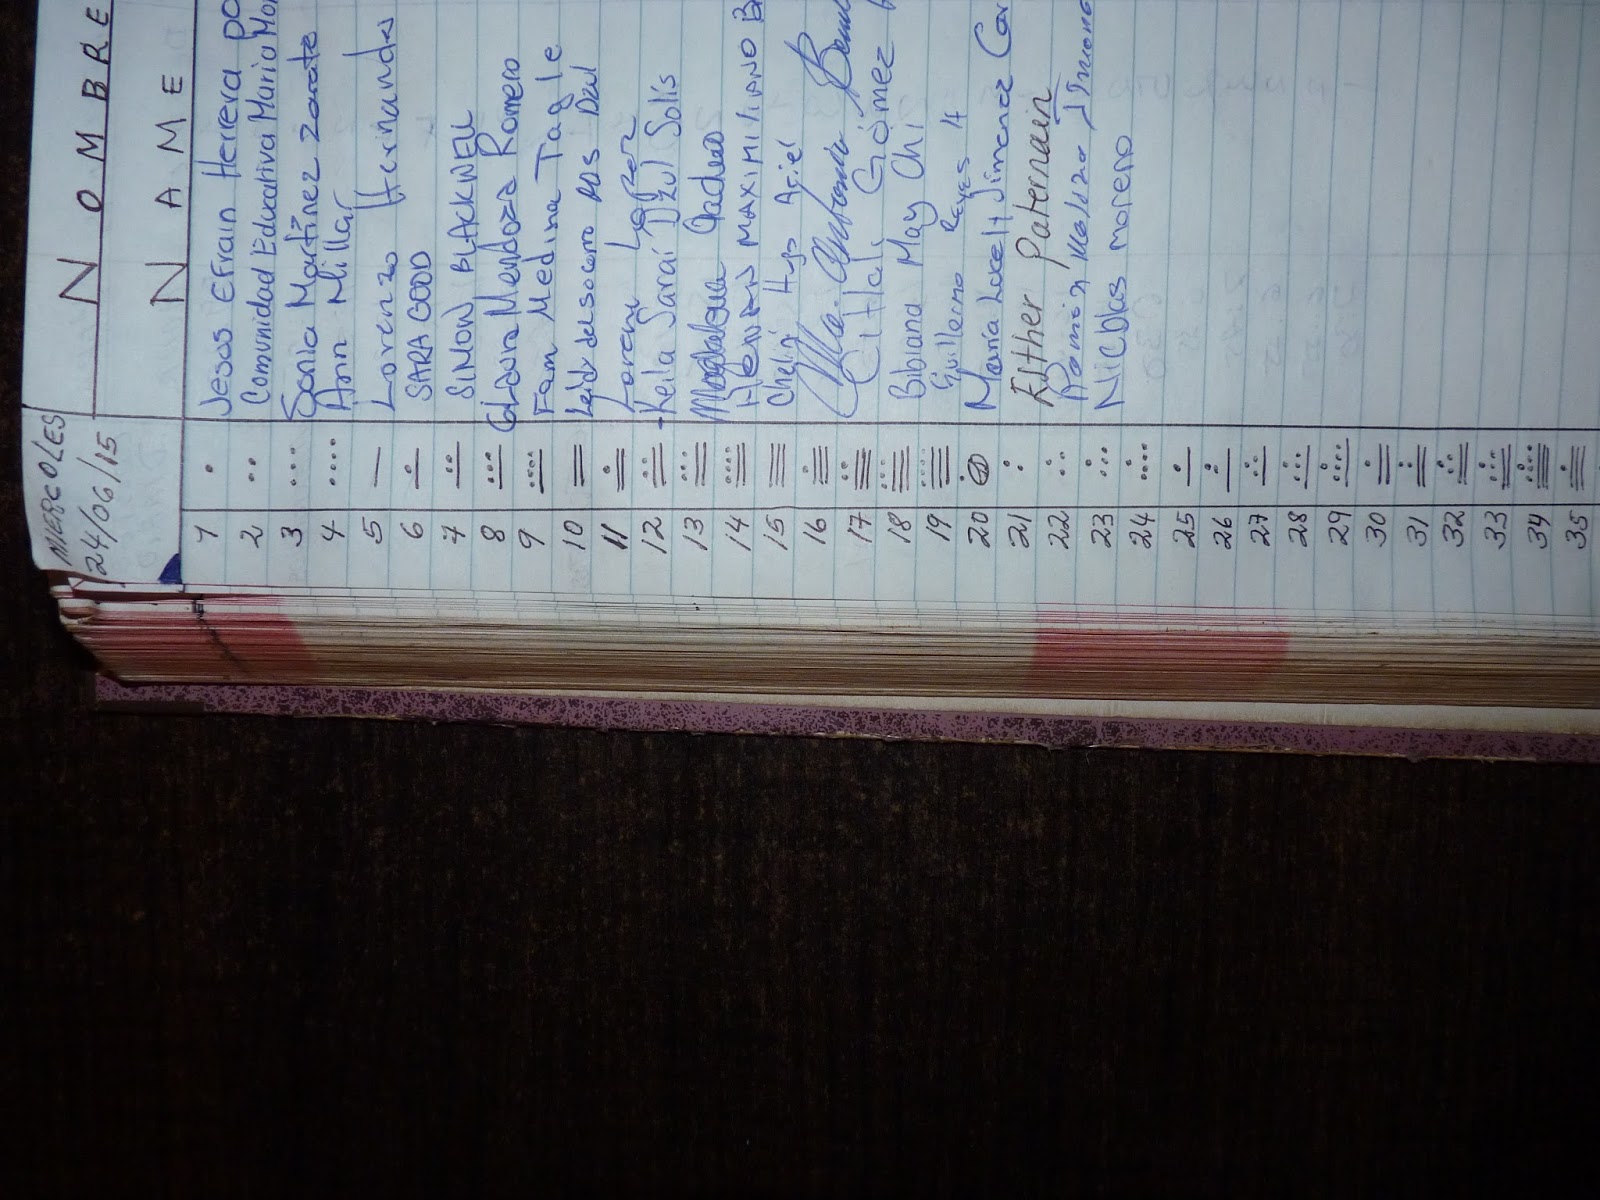 MIERCOLES
24/06/15
NOMBRE
NAME
1 Jesus Efrain Herrera
2 Comunidad Educativa Maria
3 Sonia Martínez Zarate
4 Ann Millar
5 Lorenzo Hernandes
6 SARA GOOD
7 SIMON BLACKWELL
8 Glavia Mendoza Romero
9 Fam Medina Tagle
10 Leidy del socorro Dzul
11 Lorena
12 Keila Saraí Dzul Solís
13 Magdalena
14 MAXIMILIANO
15 Hugo Ariel
16 Ma. Antonia
17 Citlali Gómez
18 Bibiana May Chi
19 Guillermo Reyes H
20 María Jimenez
21 Esther Paternain
22
23 Nicolas moreno
24
25
26
27
28
29
30
31
32
33
34
35